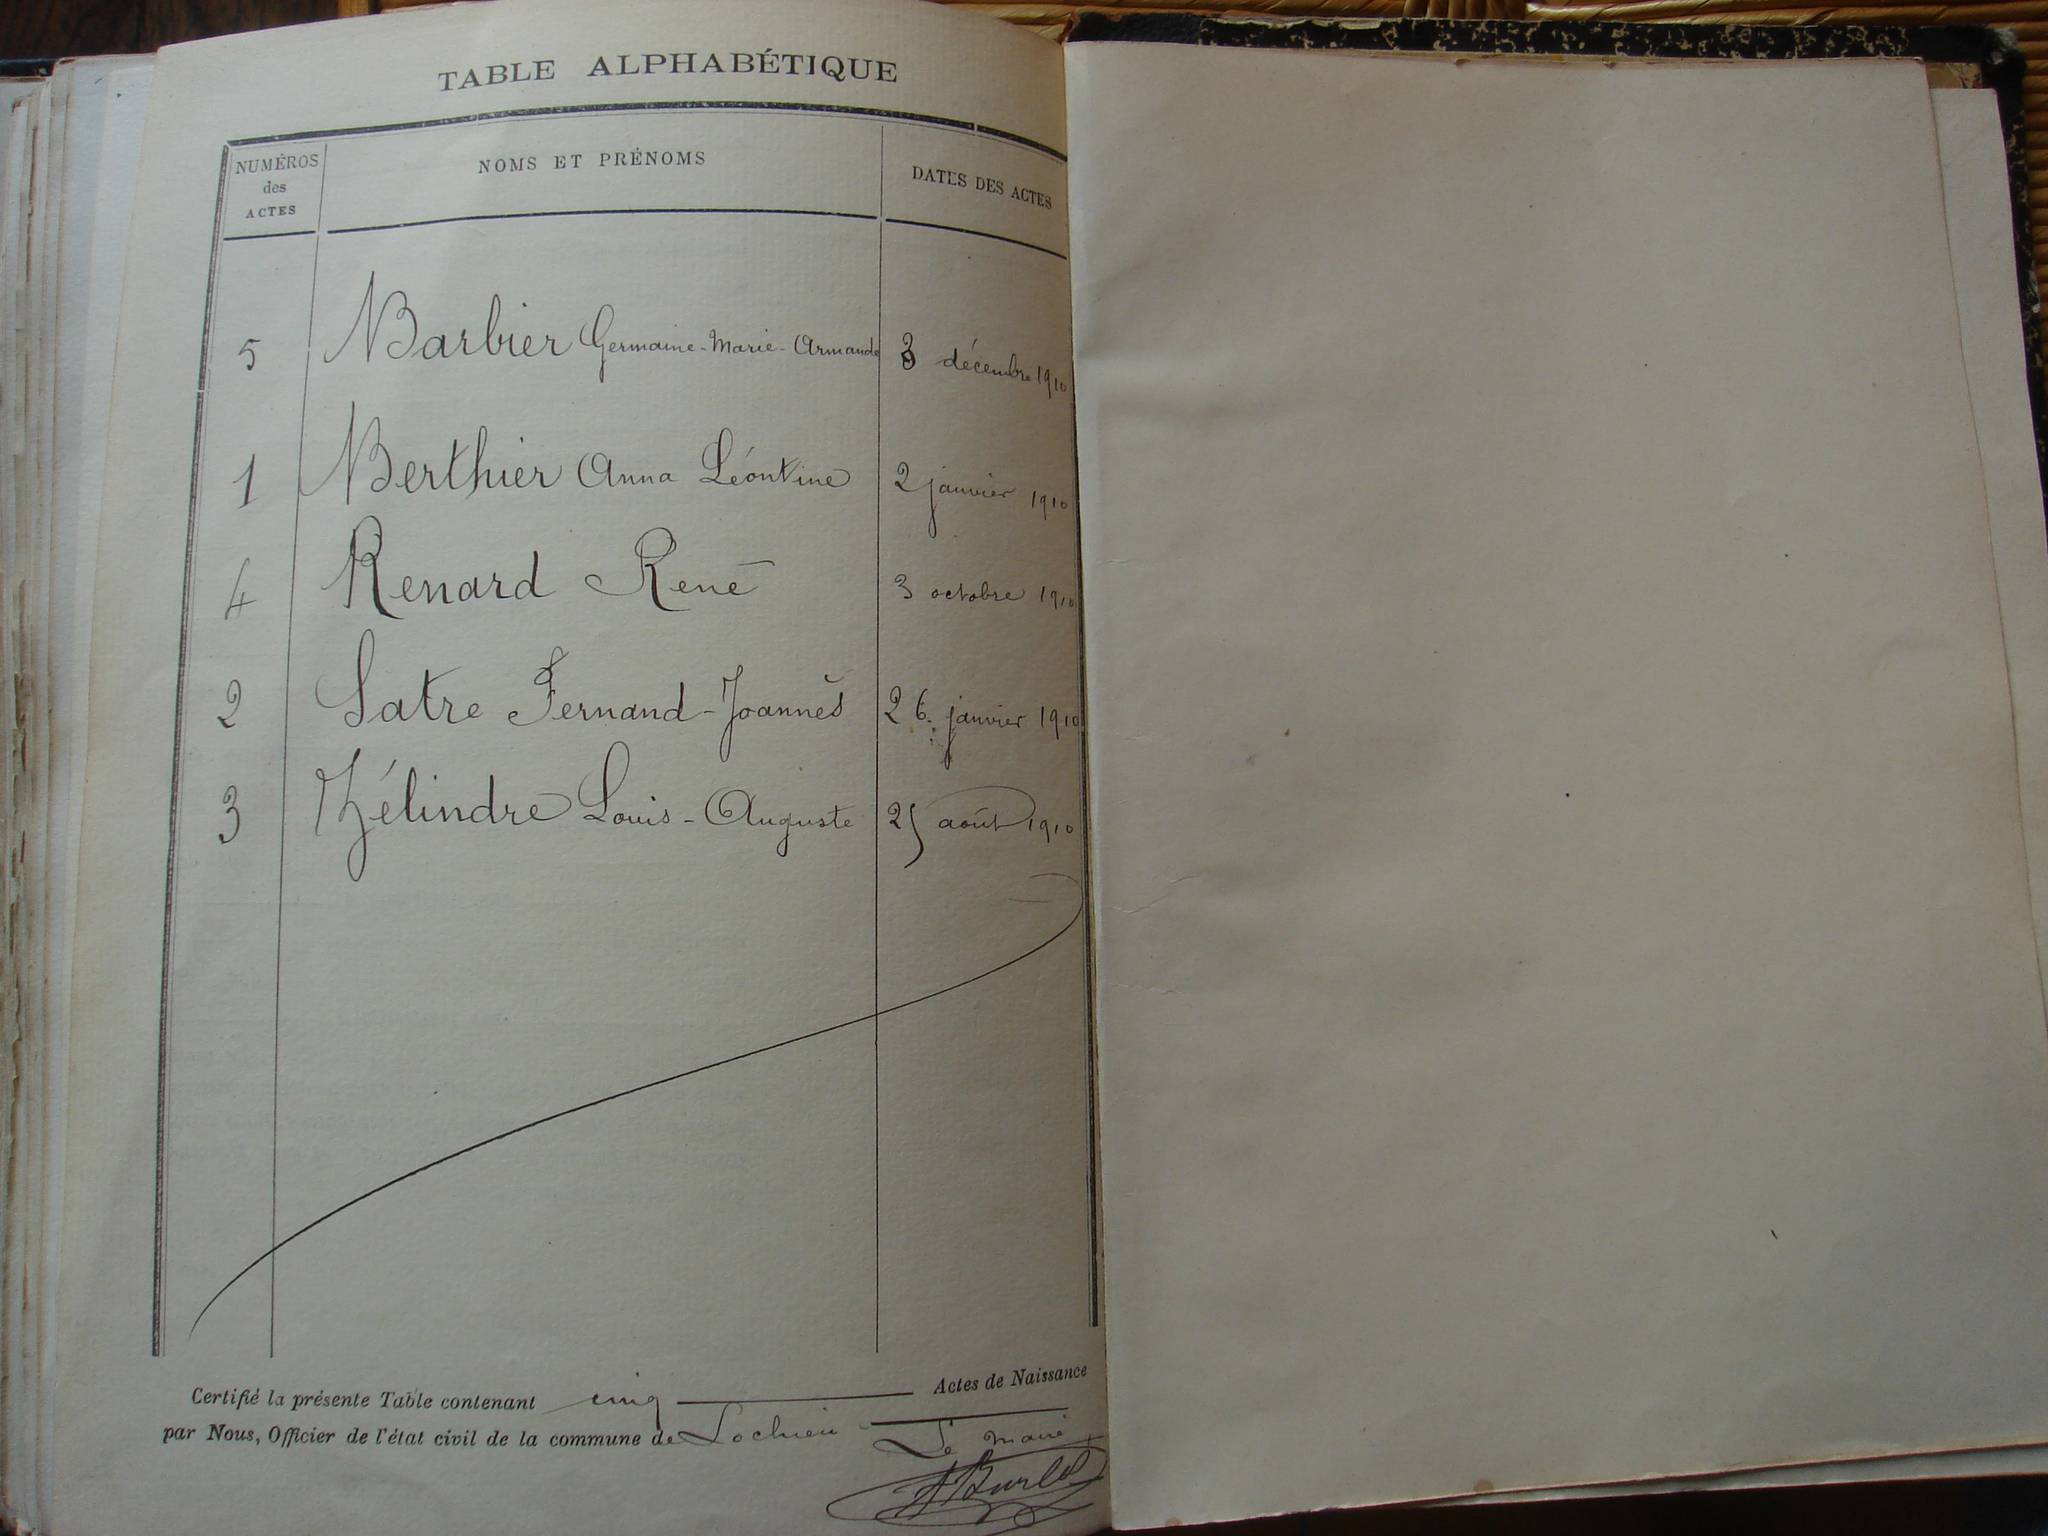 TABLE ALPHABÉTIQUE
NUMÉROS des ACTES NOMS ET PRÉNOMS DATES DES ACTES
5 Barbier Germaine-Marie-Armande 3 décembre 1910
1 Berthier Anna Léontine 2 janvier 1910
4 Renard René 3 octobre 1910
2 Satre Fernand-Joannès 26 janvier 1910
3 Zélindre Louis-Auguste 25 août 1910
Certifié la présente Table contenant cinq Actes de Naissance
par Nous, Officier de l'état civil de la commune de Lochieu
Le maire